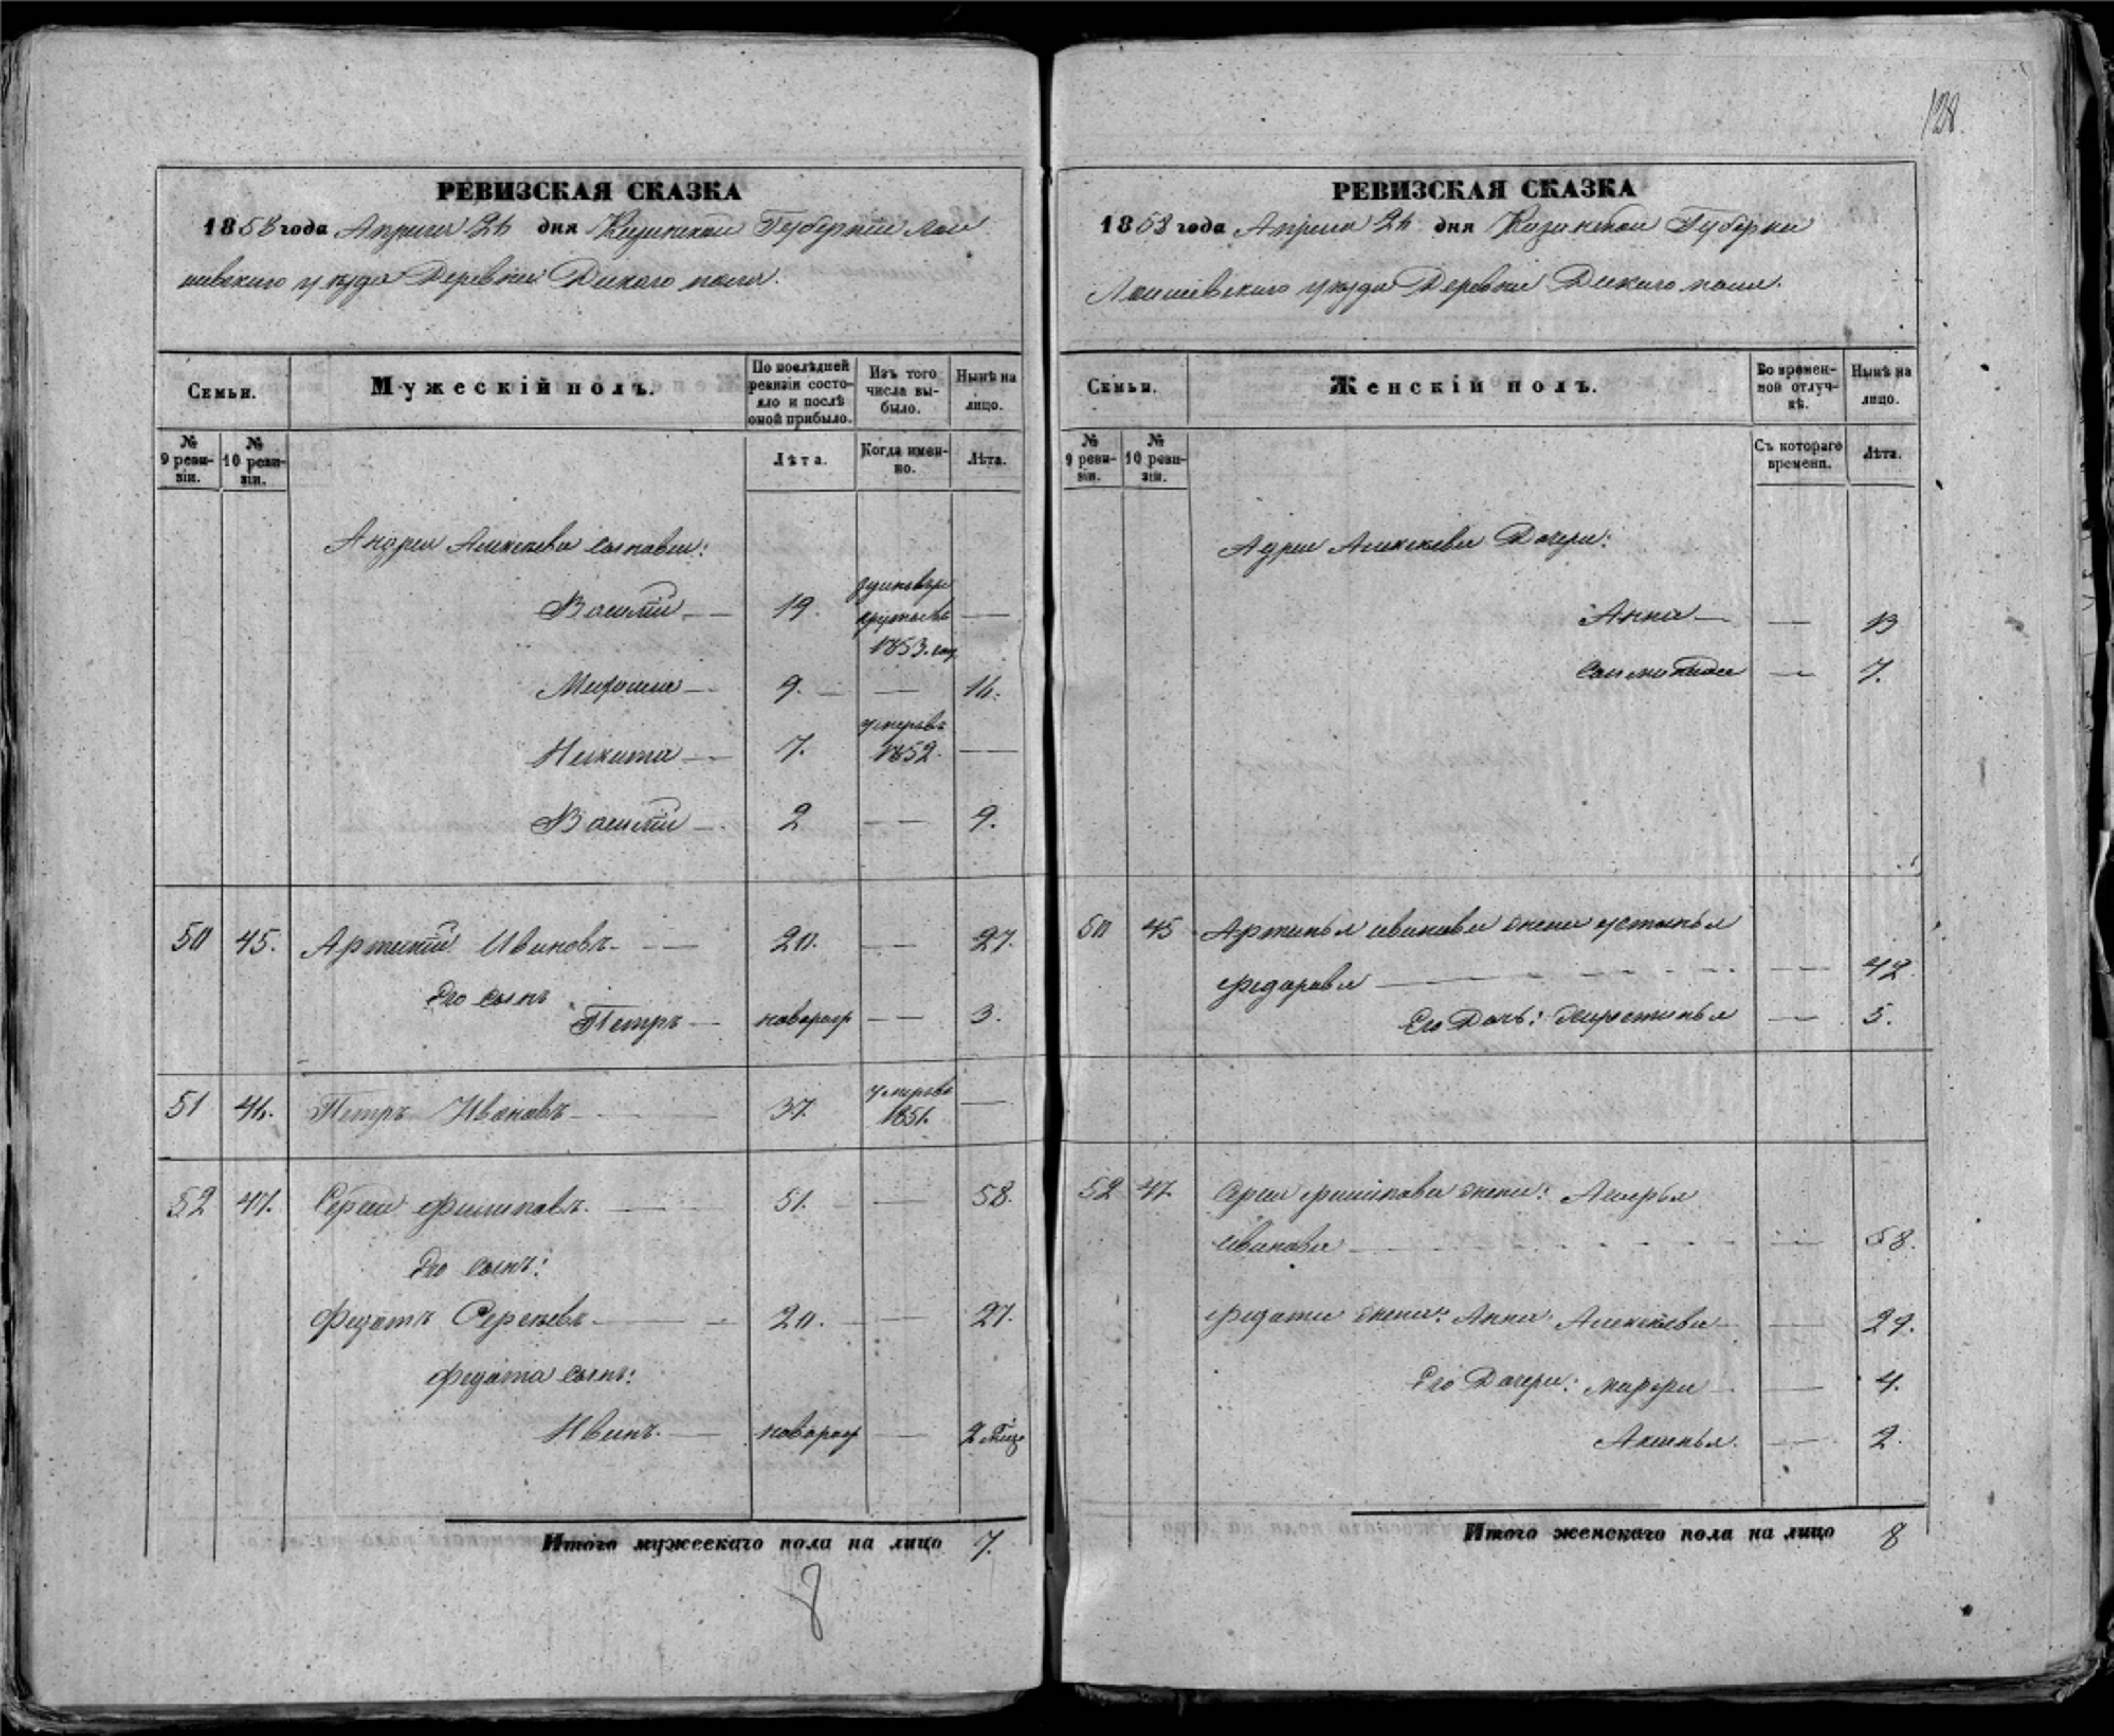 128.
РЕВИЗСКАЯ СКАЗКА
1858 года Апреля 26 дня Казанской Губернии Лаи
шевского уезда Деревни Дикого поля.
Семьи.
Мужескій полъ.
По послѣдней ревизіи состояло и послѣ оной прибыло.
Изъ того числа выбыло.
Нынѣ на лицо.
№ 9 ревизіи.
№ 10 ревизіи.
Лѣта.
Когда именно.
Лѣта.
Андрея Алексѣева сыновья:
Василій — 19. 1853. —
9. — 14.
Никита — 7. умеръ въ 1852. —
Василій — 2 — 9.
50 45. Артемій Ивановъ — 20. — 27.
Его сынъ
Петръ — новорож — 3.
51 46. Петръ Ивановъ — 37. умеръ въ 1851. —
52 47. Сергѣй Филиповъ. — 51. — 58.
Его сынъ:
Федотъ Сергѣевъ — 20. — 27.
Федота сынъ:
Иванъ. — новорож — 2 мѣсц
Итого мужескаго пола на лицо 7.
8
РЕВИЗСКАЯ СКАЗКА
1858 года Апреля 26 дня Казанской Губерни
Лаишевского уезда Деревни Дикого поля.
Семьи.
Женскій полъ.
Во временной отлучкѣ.
Нынѣ на лицо.
№ 9 ревизіи.
№ 10 ревизіи.
Съ котораго времени.
Лѣта.
Адрея Алексѣева Дочери:
Анна — — 13
— 7.
50 45 Артемья иванова жена устинья
федорова — — 42.
Его Дочь: — 5.
52 47. Сергея филипова жена:
Иванова — — 58.
федота жена: Анна Алексѣева — — 29.
Его Дочери: марфа — — 4.
Аксинья. — 2.
Итого женскаго пола на лицо 8